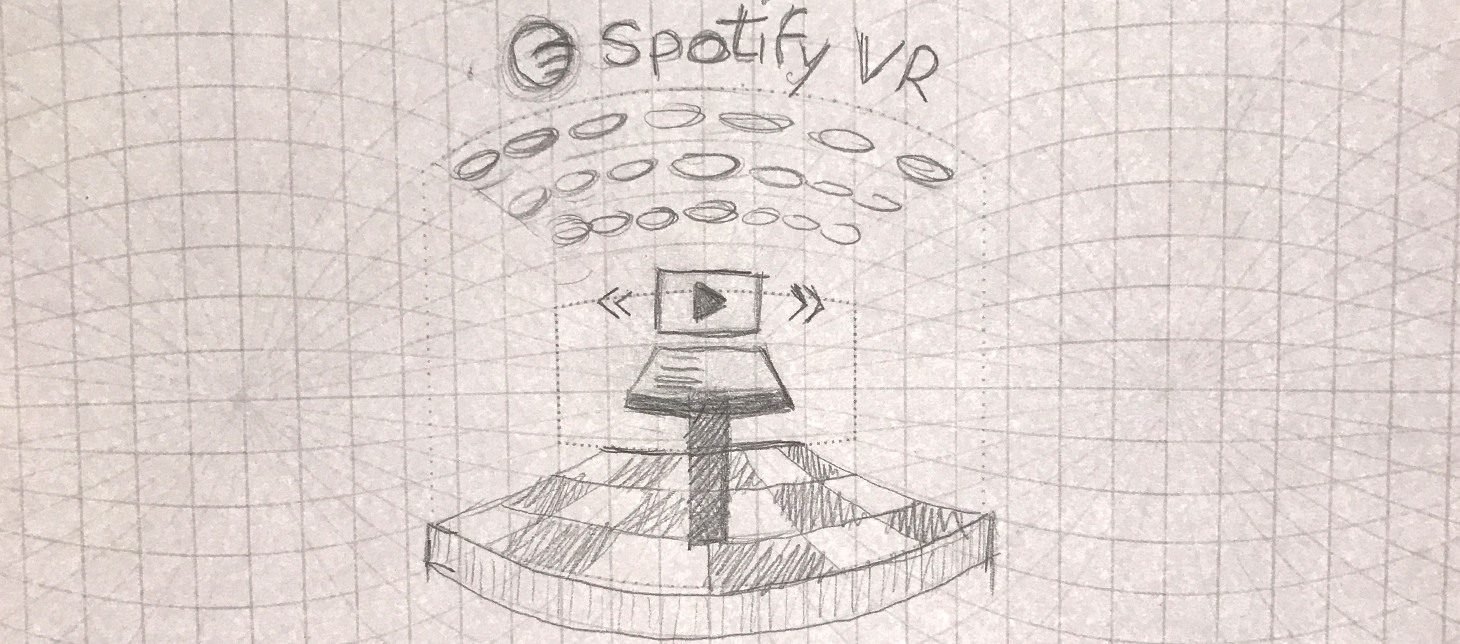 Spotify VR